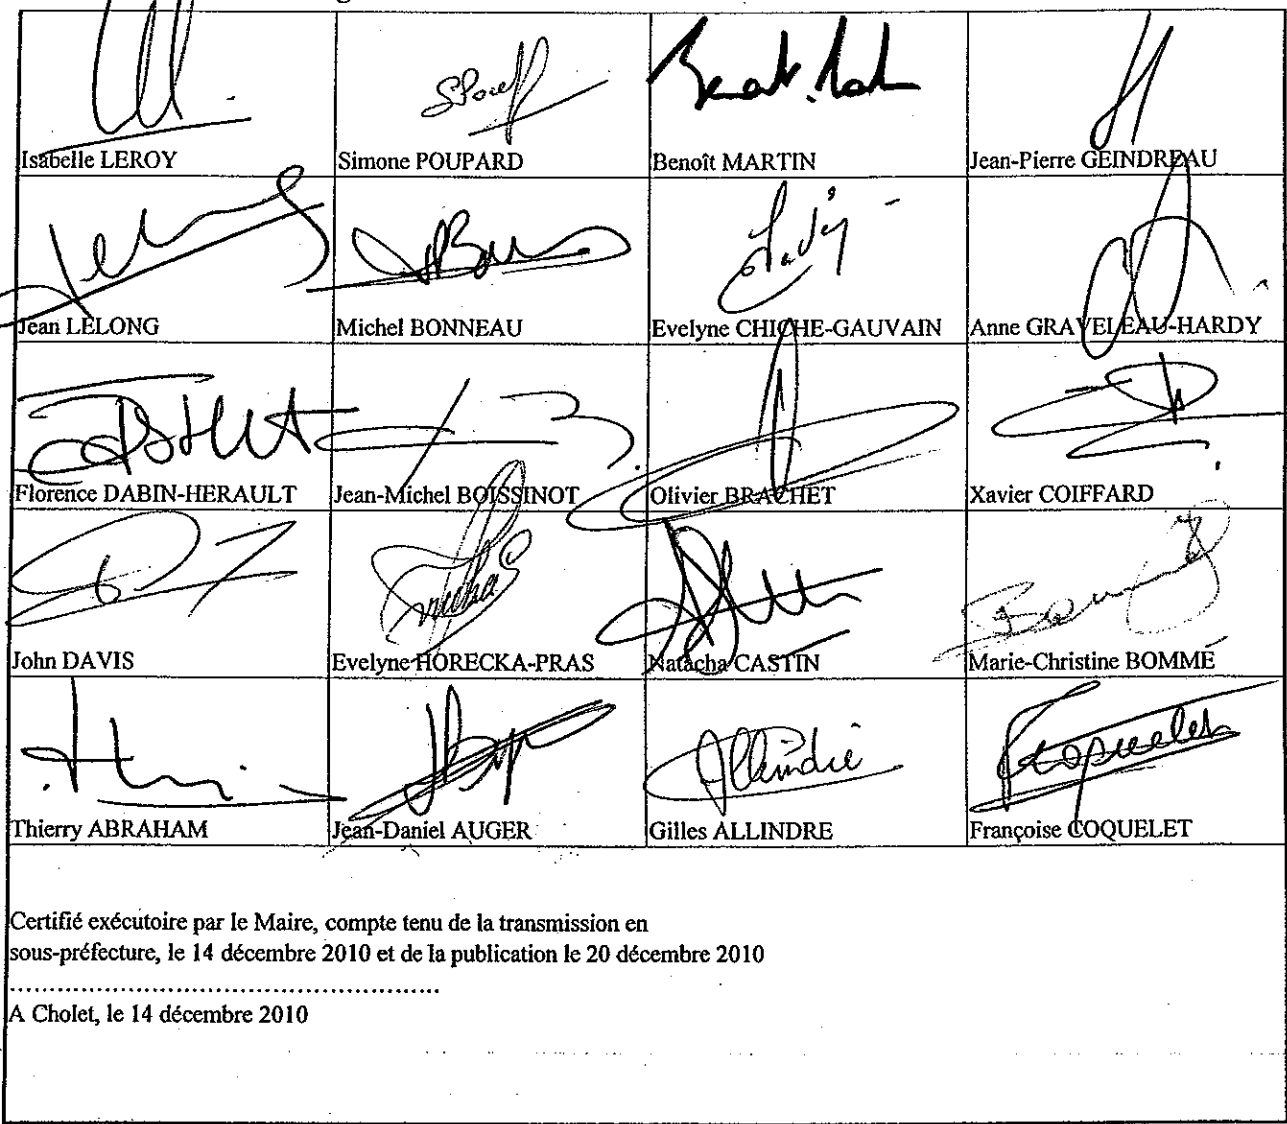 Isabelle LEROY
Simone POUPARD
Benoît MARTIN
Jean-Pierre GEINDREAU
Jean LELONG
Michel BONNEAU
Evelyne CHICHE-GAUVAIN
Anne GRAVELEAU-HARDY
Florence DABIN-HERAULT
Jean-Michel BOISSINOT
Olivier BRACHET
Xavier COIFFARD
John DAVIS
Evelyne HORECKA-PRAS
Natacha CASTIN
Marie-Christine BOMMÉ
Thierry ABRAHAM
Jean-Daniel AUGER
Gilles ALLINDRE
Françoise COQUELET
Certifié exécutoire par le Maire, compte tenu de la transmission en
sous-préfecture, le 14 décembre 2010 et de la publication le 20 décembre 2010
......................................................
A Cholet, le 14 décembre 2010